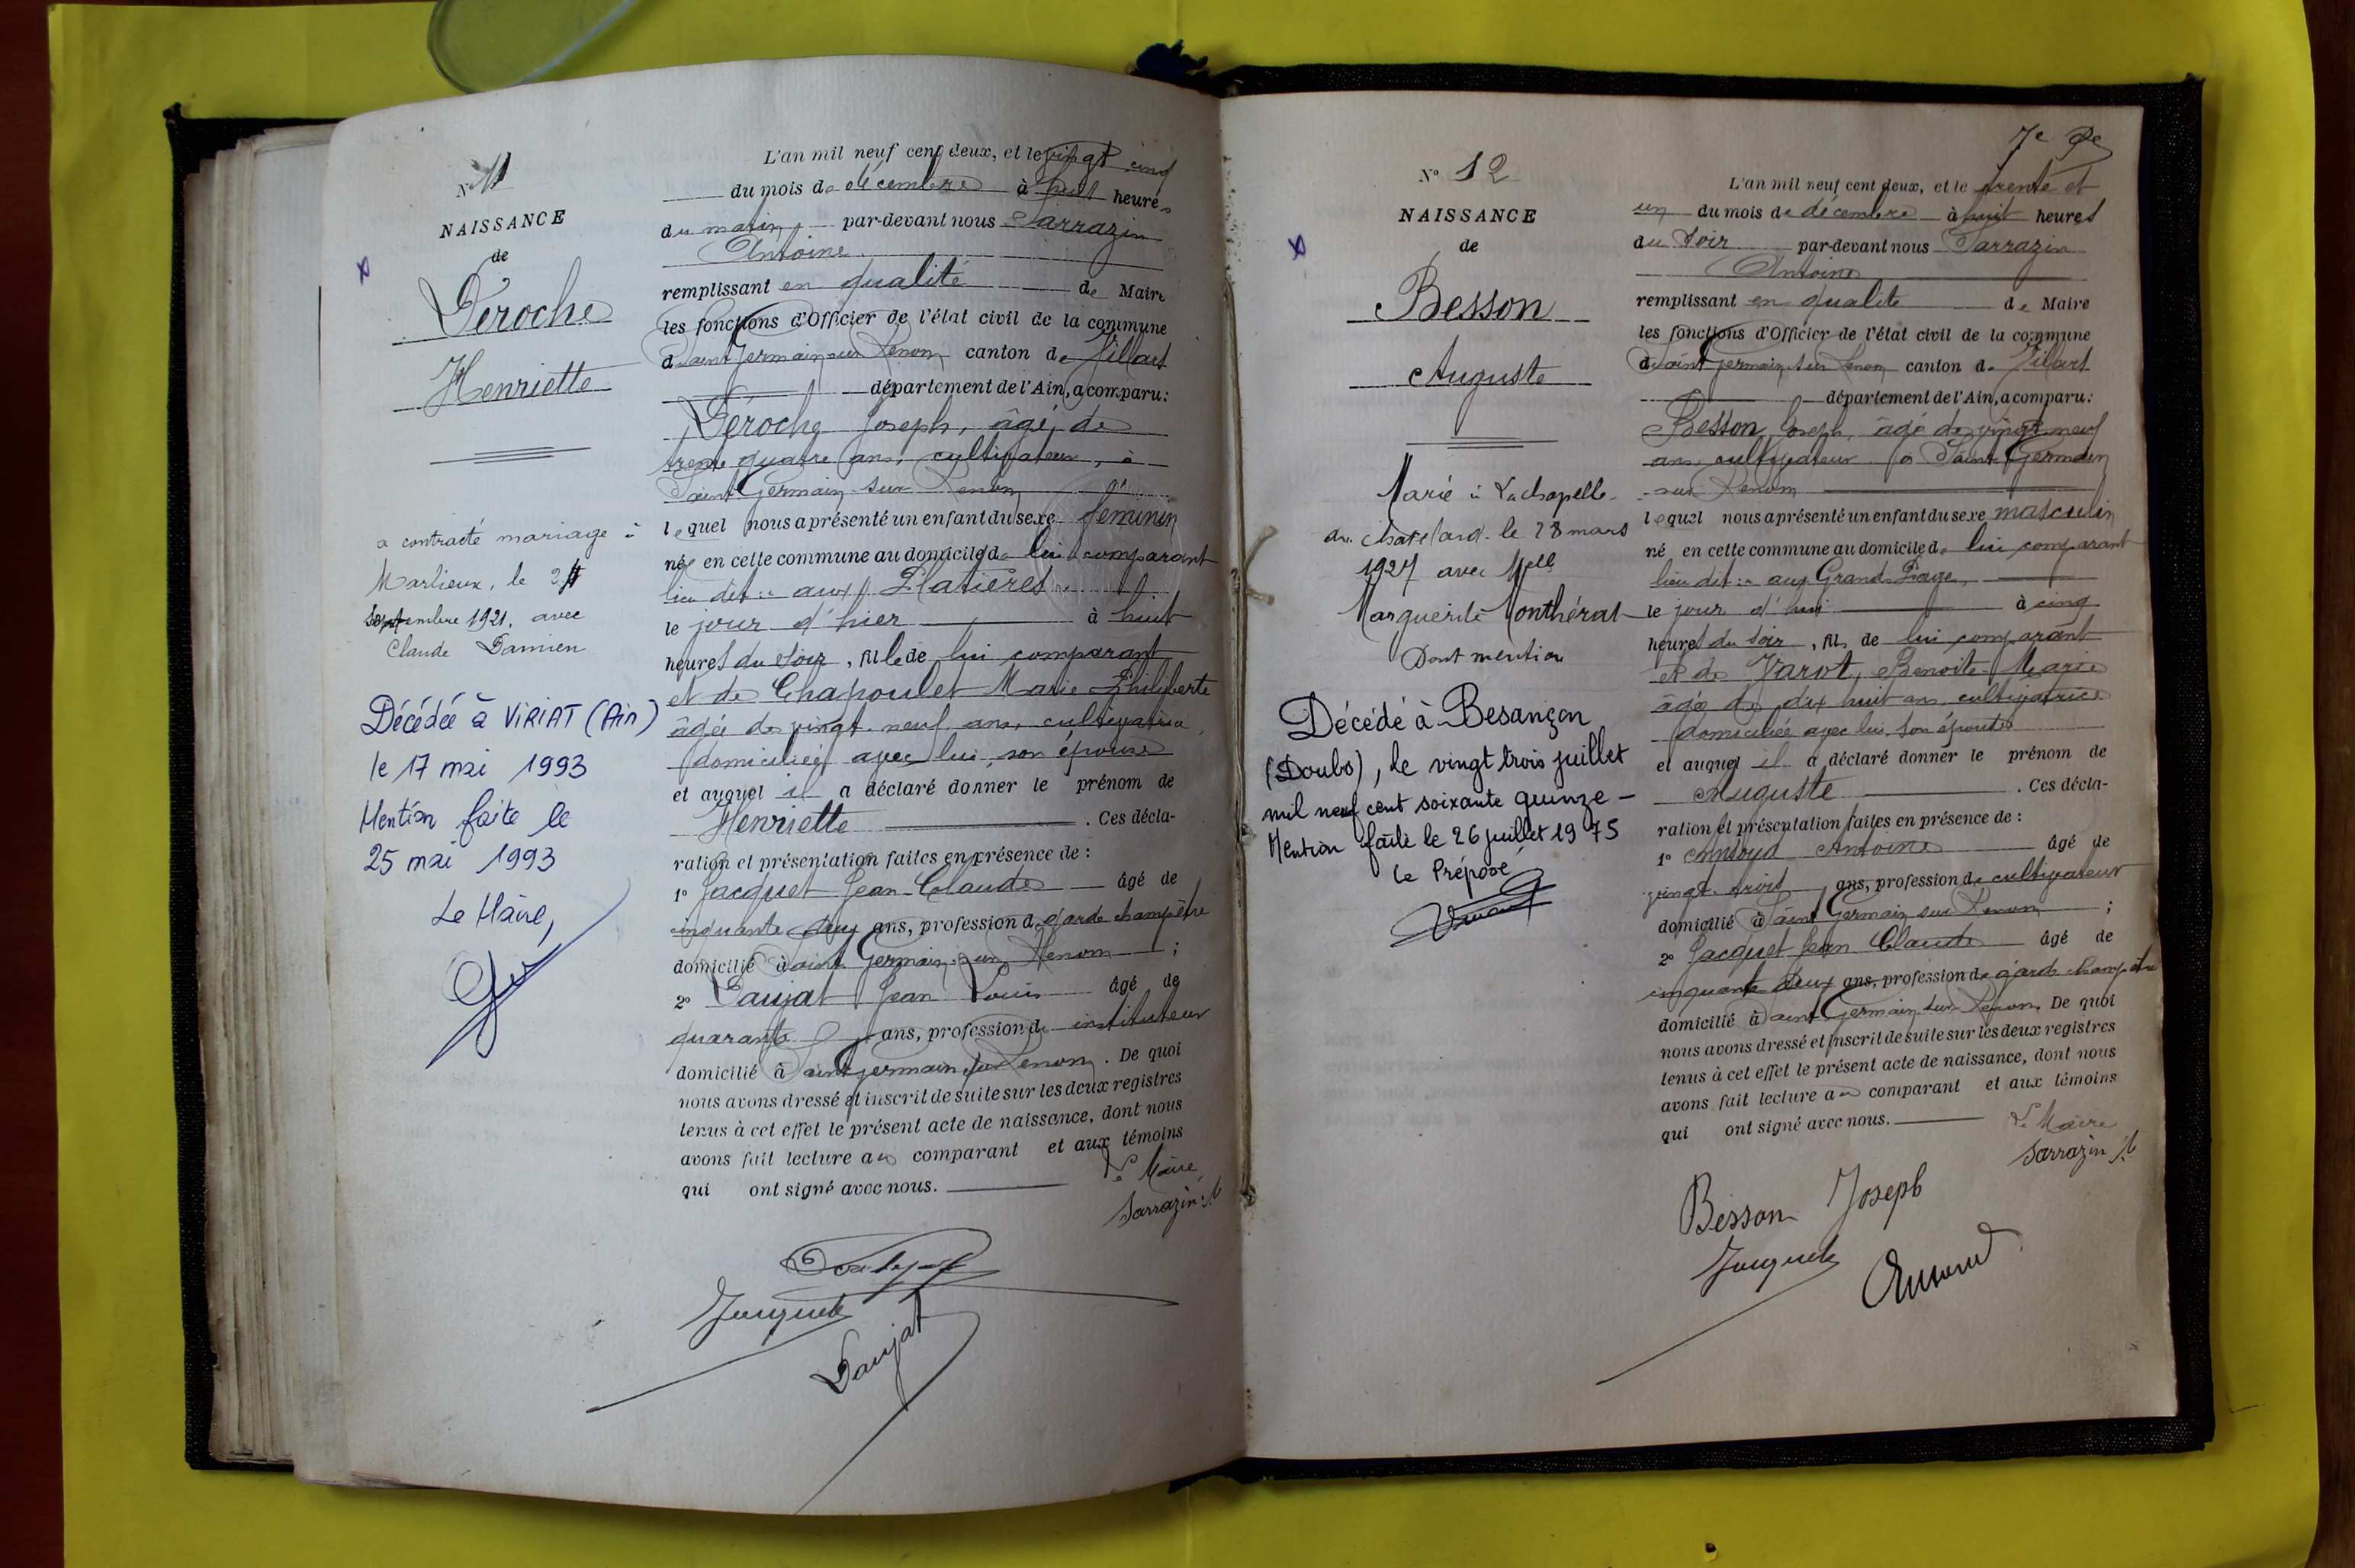 N° 11
NAISSANCE
de
Déroche
Henriette
a contracté mariage à
Marlieux, le 24
Septembre 1921, avec
Claude Damien
Décédée à VIRIAT (Ain)
le 17 mai 1993
Mention faite le
25 mai 1993
Le Maire,
L'an mil neuf cent deux, et le vingt cinq
du mois de décembre à huit heures
du matin, par-devant nous Sarrazin
Antoine
remplissant en qualité de Maire
les fonctions d'Officier de l'état civil de la commune
de Saint Germain sur Renom canton de Villars
département de l'Ain, a comparu:
Déroche Joseph, âgé de
trente quatre ans, cultivateur, à
Saint Germain sur Renom
lequel nous a présenté un enfant du sexe féminin
née en cette commune au domicile de lui comparant
lieu dit : aux Platières
le jour d'hier à huit
heures du soir, fille de lui comparant
et de Chapoulet Marie Philiberte
âgée de vingt neuf ans, cultivatrice
domiciliée avec lui, son épouse
et auquel il a déclaré donner le prénom de
Henriette. Ces décla-
ration et présentation faites en présence de :
1° Jacquet Jean-Claude âgé de
cinquante deux ans, profession de garde champêtre
domicilié à Saint Germain sur Renom ;
2° Daujat Jean Louis âgé de
quarante ans, profession de instituteur
domicilié à Saint Germain sur Renom. De quoi
nous avons dressé et inscrit de suite sur les deux registres
tenus à cet effet le présent acte de naissance, dont nous
avons fait lecture au comparant et aux témoins
qui ont signé avec nous.
Le Maire
Sarrazin A
Jacquet
Daujat
7e
N° 12
NAISSANCE
de
Besson
Auguste
Marié à La chapelle
du chatelard le 28 mars
1927 avec Melle
Marguerite Monthérat
Dont mention
Décédé à Besançon
(Doubs), le vingt trois juillet
mil neuf cent soixante quinze -
Mention faite le 26 juillet 1975
Le Préposé
L'an mil neuf cent deux, et le trente et
un du mois de décembre à huit heures
du soir par-devant nous Sarrazin
Antoine
remplissant en qualité de Maire
les fonctions d'Officier de l'état civil de la commune
de Saint Germain sur Renom canton de Villars
département de l'Ain, a comparu:
Besson Joseph, âgé de vingt neuf
ans, cultivateur à Saint Germain
sur Renom
lequel nous a présenté un enfant du sexe masculin
né en cette commune au domicile de lui comparant
lieu dit : aux Grand
le jour d'hui à cinq
heures du soir, fils de lui comparant
et de Jarot, Benoite Marie
âgée de dix huit ans cultivatrice
domiciliée avec lui, son épouse
et auquel il a déclaré donner le prénom de
Auguste. Ces décla-
ration et présentation faites en présence de :
1° Antoine âgé de
vingt ans, profession de cultivateur
domicilié à Saint Germain sur Renom ;
2° Jacquet Jean Claude âgé de
cinquante deux ans, profession de garde champêtre
domicilié à Saint Germain sur Renom. De quoi
nous avons dressé et inscrit de suite sur les deux registres
tenus à cet effet le présent acte de naissance, dont nous
avons fait lecture au comparant et aux témoins
qui ont signé avec nous.
Le Maire
Sarrazin A
Besson Joseph
Jacquet